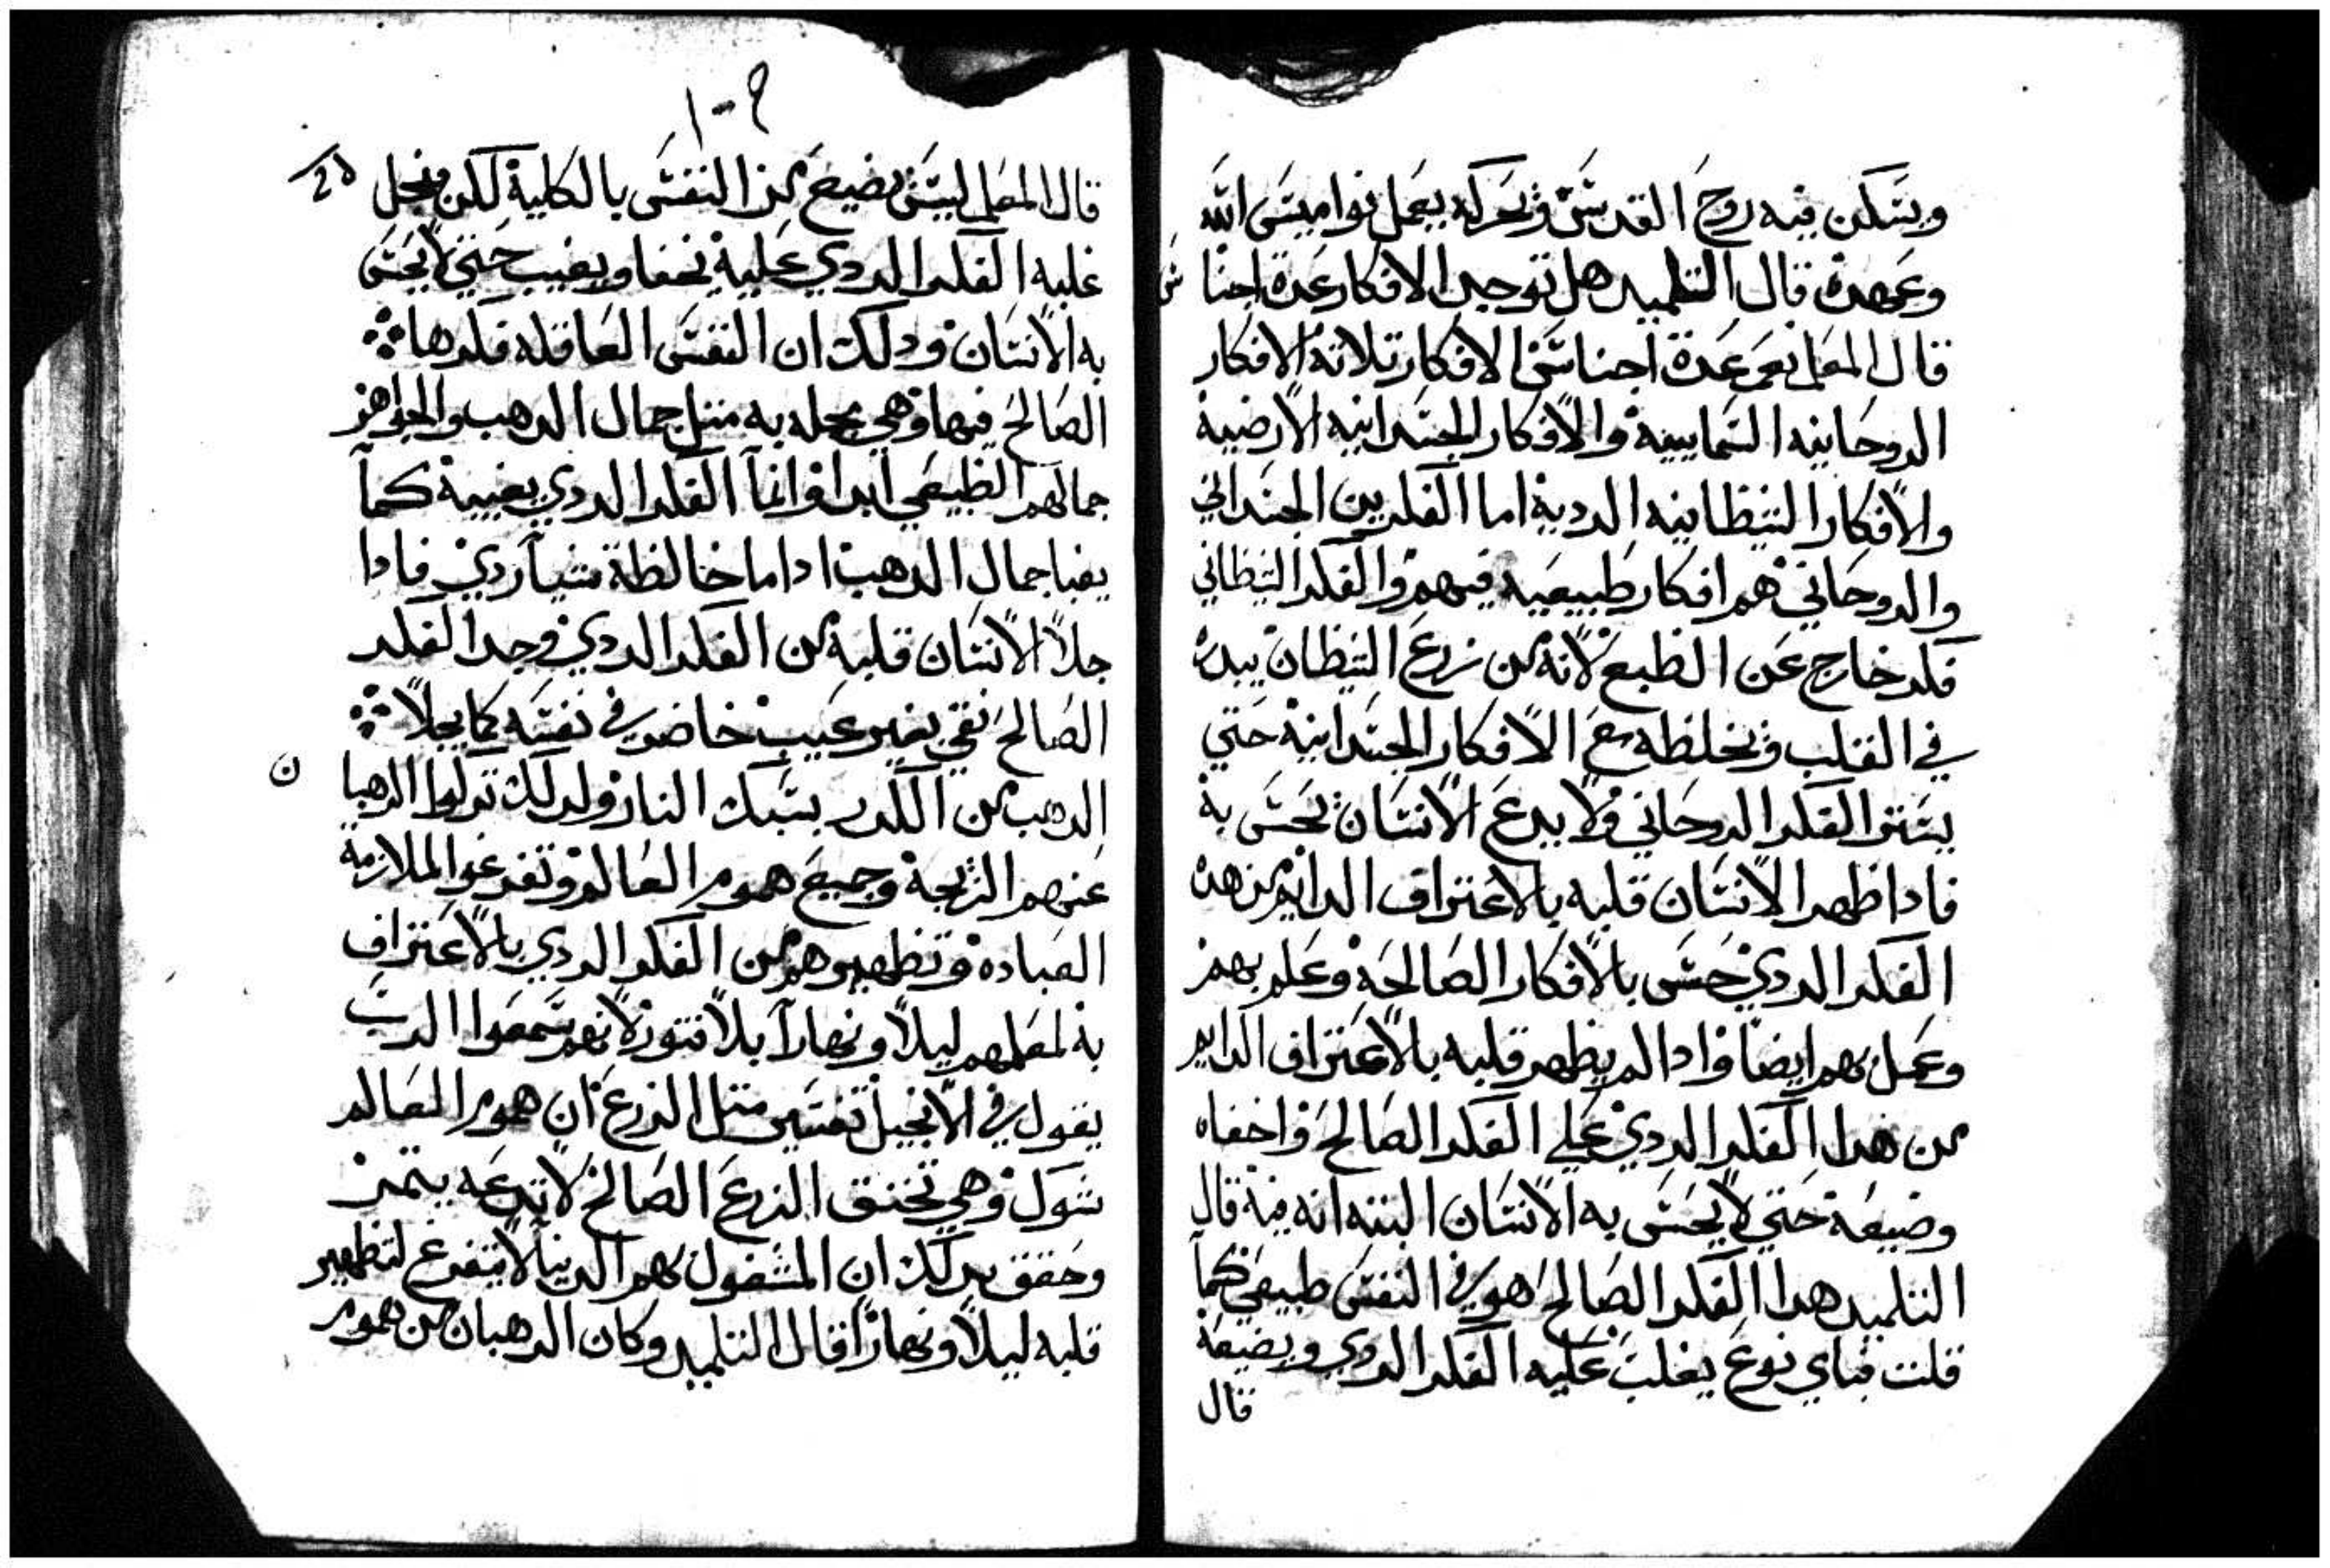 ويسكن فيه روح القدس وتحركه يعمل نواميس الله
وعهده قال التلميد هل توجد الافكار عدة اجنا س
قال المعلم نعم عدة اجناس الافكار تلاتة الافكار
الروحانيه السماييه والافكار الجسدانيه الارضية
والافكار الشيطانيه الردية اما الفكرين الجسداني
والروحاني هم افكار طبيعيه فيهم والفكر الشيطاني
فكر خارج عن الطبع لانه من زرع الشيطان يبدره
في القلب ويخلطه مع الافكار الجسدانية حتي
يستتر الفكر الروحاني ولا يدع الانسان يحس به
فادا طهر الانسان قلبه بالاعتراف الدايم من هده
الفكر الردي حس بالافكار الصالحة وعلم بهم
وعمل بهم ايضا وادا لم يطهر قلبه بالاعتراف الدايم
من هدا الفكر الردي علي الفكر الصالح واخفاه
وضيعه حتي لا يحس به الانسان البته انه فيه قال
التلميد هدا الفكر الصالح هو في النفس طبيعي كما
قلت فباي نوع يغلب عليه الفكر الردي ويضيعه
قال
١٠٩
قال المعلم ليس يضيع من النفس بالكلية لكن
عليه الفكر الردي عليه يخفا ويغيب حتي لا يحس
به الانسان ودلك ان النفس العاقله فكرها
الصالح فيها وهي بجمله به متل جمال الدهب والجواهر
جمالهم الطبيعي ابدا وانما الفكر الردي يغيبه كما
يغبا جمال الدهب ادا ما خالطة شيا ردي فادا
جلا الانسان قلبه من الفكر الردي وجد الفكر
الصالح نقي بغير عيب حاضر في نفسه كما يجلا
الدهب من الكدر بسبك النار ولدلك تركوا الرهبا ن
عنهم الزيجة وجميع هموم العالم وتفرغوا لملازمة
العباده وتطهيرهم من الفكر الردي بالاعتراف
به لمعلمهم ليلا ونهارا بلا فتور لانهم سمعوا الرب
يقول في الانجيل تفسير متل الزرع ان هموم العالم
شوك وهي تخنق الزرع الصالح لا تدعه يتمر
وحقق بدلك ان المشغول بهم الدنيا لا يتفرغ لتطهير
قلبه ليلا ونهارا قال التلميد وكان الرهبان من هموم